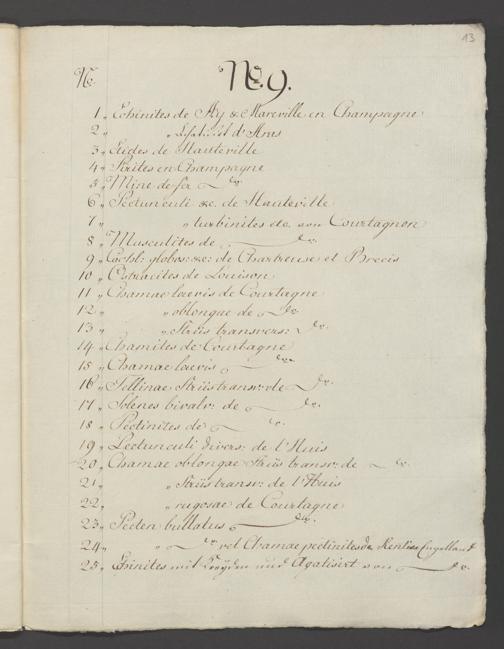 13
No. No. 9.
1 „ Echinites de Ay & Mareville en Champagne
2 „ „
3 „ de Hauteville
4 „ Strites en Champagne
5 „ Mine de fer do.
6 „ Pectunculi &c. de Hauteville
7 „ „ turbinites etc. von Courtagnon
8 „ Musculites de do.
9 „ Cochl: globos: &c: de Chartreuse et Brecis
10 „ Ostracites de Louison
11 „ Chamae laevis de Courtagne
12 „ „ oblongae de do
13 „ „ Striis transvers: do.
14 „ Chamites de Courtagne
15 „ Chamae laevis do
16 „ Tellinae Striis transv: de do.
17 „ Solenes bivalv: de do.
18 „ Pectinites de do.
19 „ Pectunculi divers: de l'Huis
20 „ Chamae oblongae Striis transv: de do.
21 „ „ Striis transv: de l'Huis
22 „ „ rugosae de Courtagne
23 „ Pecten bullatus do.
24 „ „ do vel Chamae pectinites de Engelland
25 „ mit und Agatisirt von do.